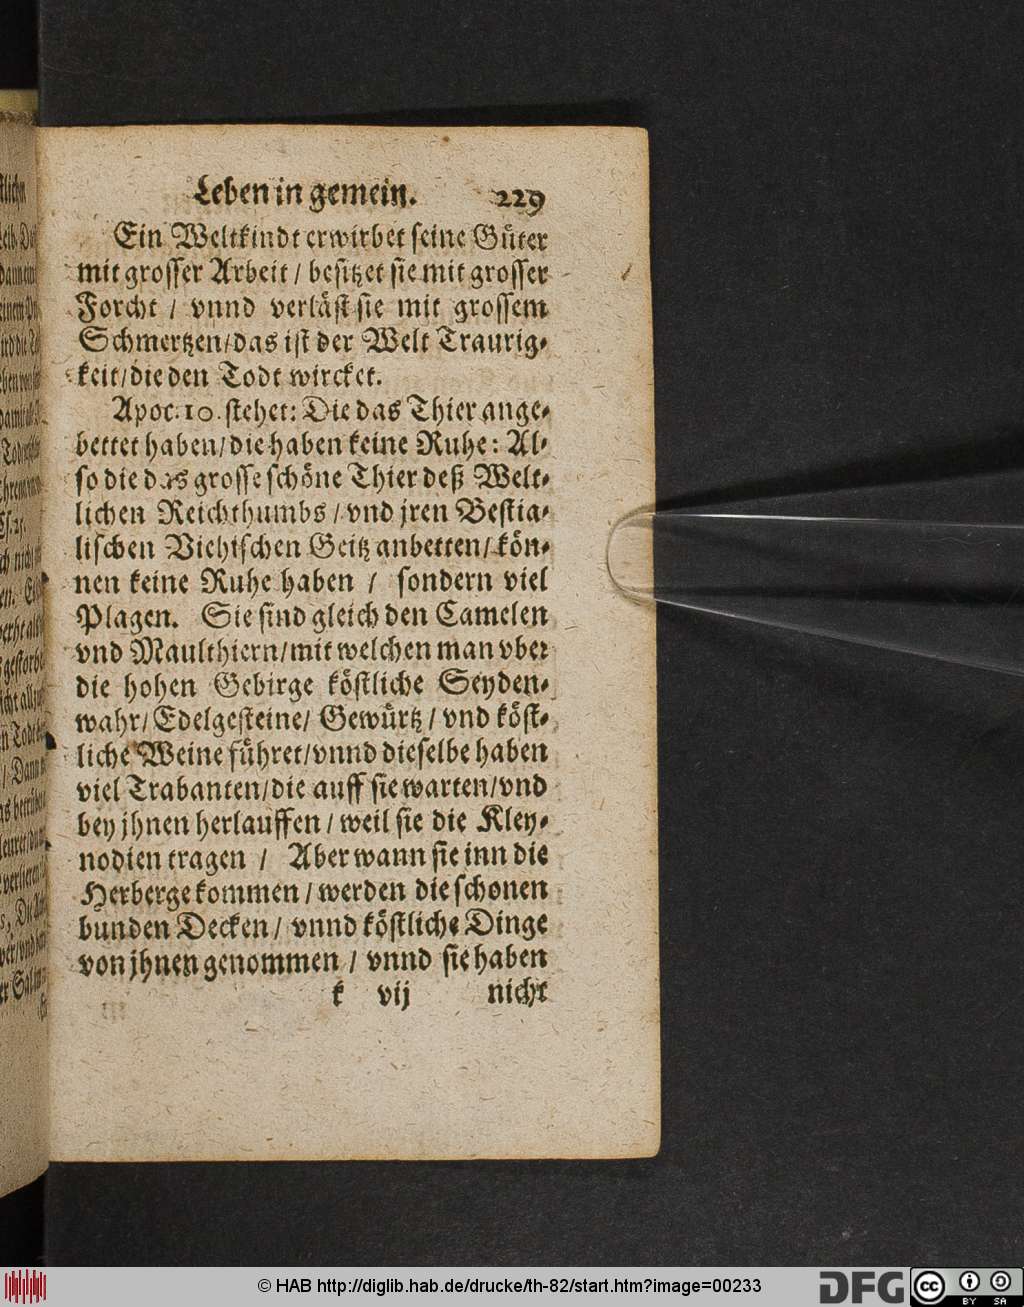 Leben in gemein. 229
Ein Weltkindt erwirbet seine Güter
mit grosser Arbeit / besitzet sie mit grosser
Forcht / vnnd verläst sie mit grossem
Schmertzen/das ist der Welt Traurig-
keit/die den Todt wircket.
Apoc. 10. stehet: Die das Thier ange-
bettet haben/die haben keine Ruhe: Al-
so die das grosse schöne Thier deß Welt-
lichen Reichthumbs / vnd jren Bestia-
lischen Viehischen Geitz anbetten/ kön-
nen keine Ruhe haben / sondern viel
Plagen. Sie sind gleich den Camelen
vnd Maulthiern/mit welchen man vber
die hohen Gebirge köstliche Seyden-
wahr/ Edelgesteine/ Gewürtz / vnd köst-
liche Weine führet/vnnd dieselbe haben
viel Trabanten/die auff sie warten/vnd
bey jhnen herlauffen / weil sie die Kley-
nodien tragen / Aber wann sie inn die
Herberge kommen / werden die schonen
bunden Decken / vnnd köstliche Dinge
von jhnen genommen / vnnd sie haben
k vij nicht
© HAB http://diglib.hab.de/drucke/th-82/start.htm?image=00233
DFG
cc BY SA